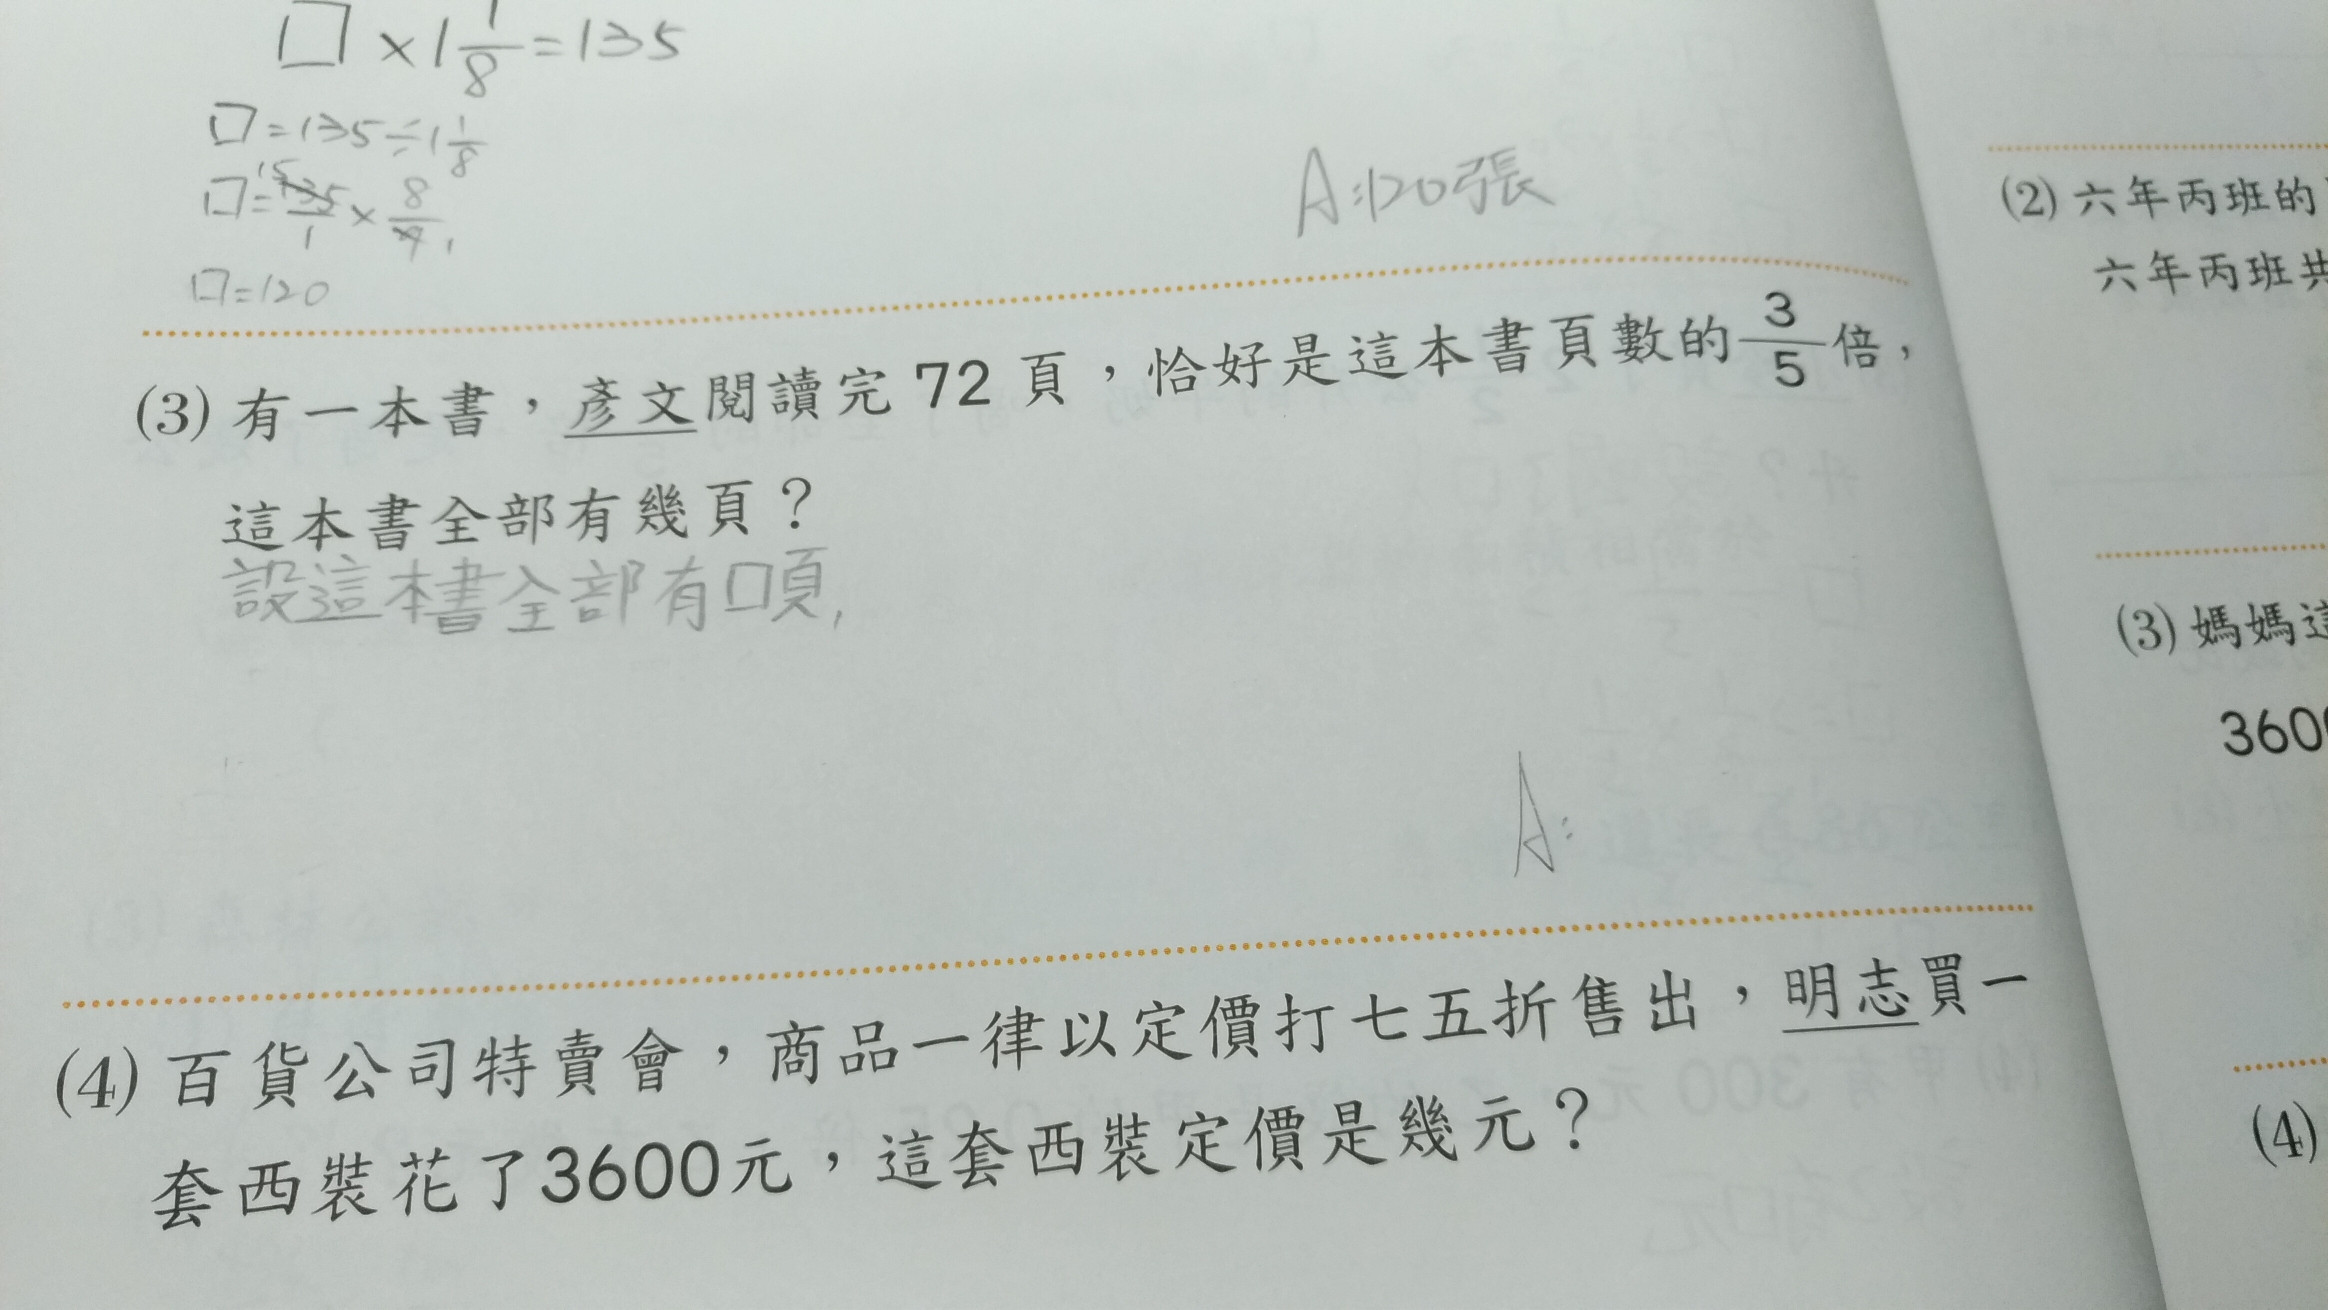 □×1 1/8=135
□=135÷1 1/8
15
□=135/1×8/9 1
□=120
A:120張
(3) 有一本書，彥文閱讀完 72 頁，恰好是這本書頁數的 3/5 倍，
這本書全部有幾頁？
設這本書全部有□頁,
A:
(4) 百貨公司特賣會，商品一律以定價打七五折售出，明志買一
套西裝花了3600元，這套西裝定價是幾元？
(2) 六年丙班的
六年丙班共
(3) 媽媽這
3600
(4)